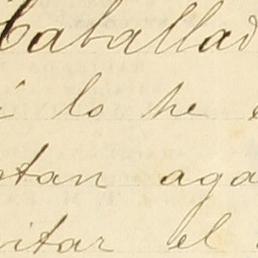 Caballad
i lo he e
stan aga
uitar el